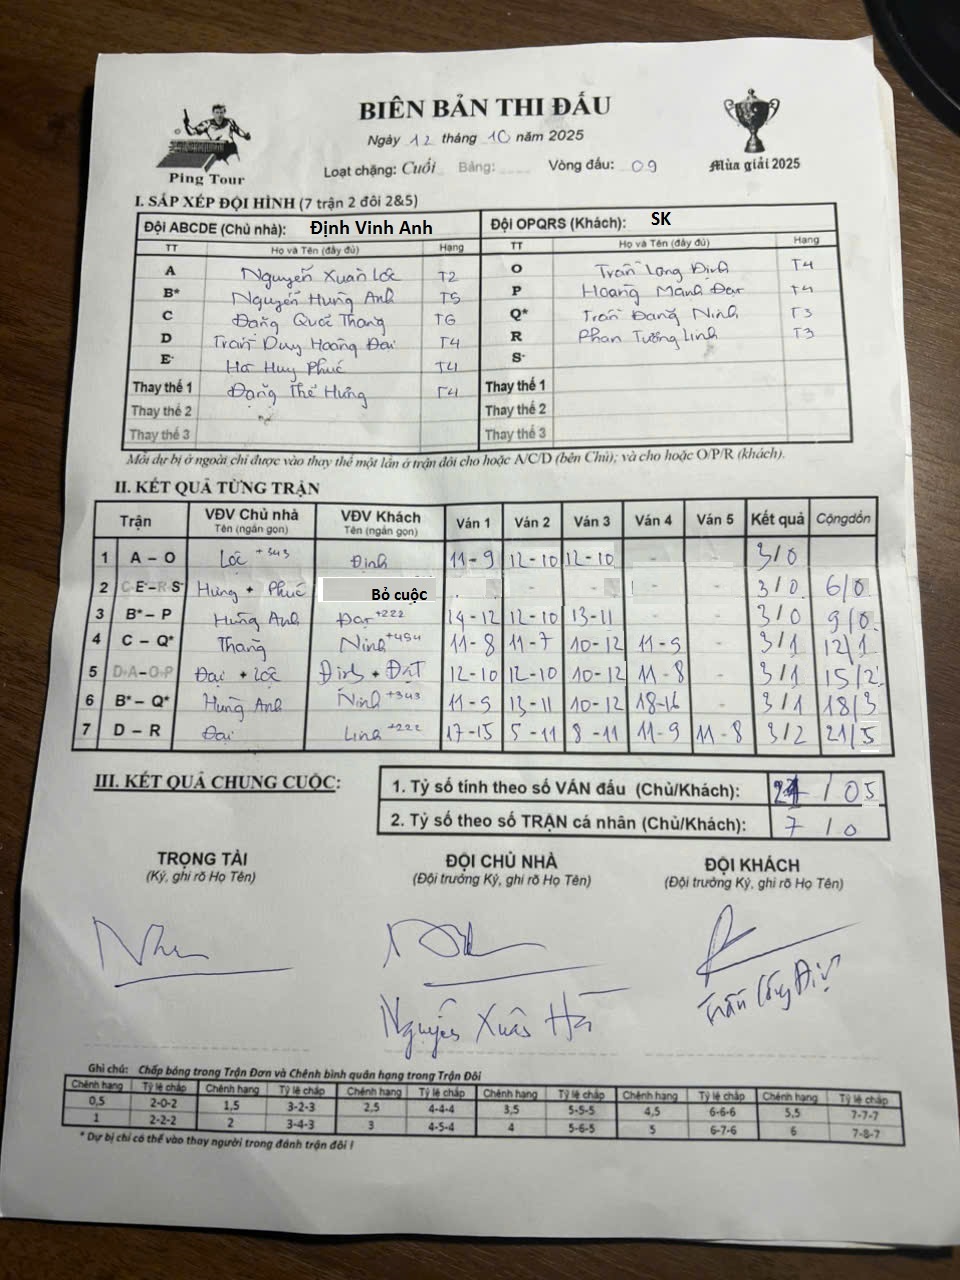 BIÊN BẢN THI ĐẤU
Ngày 12 tháng 10 năm 2025
Ping Tour
Loạt chặng: Cuối Bảng: Vòng đấu: 09
Mùa giải 2025
I. SẮP XẾP ĐỘI HÌNH (7 trận 2 đôi 2&5)
Đội ABCDE (Chủ nhà): Định Vinh Anh Đội OPQRS (Khách): SK
TT Họ và Tên (đầy đủ) Hạng TT Họ và Tên (đầy đủ) Hạng
A Nguyễn Xuân Lộc T2 O Trần Long Định T4
B* Nguyễn Hưng Anh T5 P Hoàng Mạnh Đạt T4
C Đặng Quốc Thắng T6 Q* Trần Đăng Ninh T3
D Trần Duy Hoàng Đại T4 R Phan Tường Linh T3
E- Hà Huy Phúc T4 S-
Thay thế 1 Đặng Thế Hưng T4 Thay thế 1
Thay thế 2 Thay thế 2
Thay thế 3 Thay thế 3
Mỗi dự bị ở ngoài chỉ được vào thay thế một lần ở trận đôi cho hoặc A/C/D (bên Chủ); và cho hoặc O/P/R (khách).
II. KẾT QUẢ TỪNG TRẬN
Trận VĐV Chủ nhà Tên (ngắn gọn) VĐV Khách Tên (ngắn gọn) Ván 1 Ván 2 Ván 3 Ván 4 Ván 5 Kết quả Cộngdồn
1 A – O Lộc +343 Định 11-9 12-10 12-10 - - 3/0
2 C-E–R-S- Hưng + Phúc Bỏ cuộc - - 3/0 6/0
3 B*– P Hưng Anh Đạt +222 14-12 12-10 13-11 - - 3/0 9/0
4 C – Q* Thắng Ninh +454 11-8 11-7 10-12 11-5 - 3/1 12/1
5 D+A–O+P Đại + Lộc Định + ĐẠT 12-10 12-10 10-12 11-8 - 3/1 15/2
6 B*– Q* Hưng Anh Ninh +343 11-5 13-11 10-12 18-16 - 3/1 18/3
7 D – R Đại Linh +222 17-15 5-11 8-11 11-9 11-8 3/2 21/5
III. KẾT QUẢ CHUNG CUỘC:
1. Tỷ số tính theo số VÁN đấu (Chủ/Khách): 21 / 05
2. Tỷ số theo số TRẬN cá nhân (Chủ/Khách): 7 / 0
TRỌNG TÀI ĐỘI CHỦ NHÀ ĐỘI KHÁCH
(Ký, ghi rõ Họ Tên) (Đội trưởng Ký, ghi rõ Họ Tên) (Đội trưởng Ký, ghi rõ Họ Tên)
Nguyễn Xuân Hà
Ghi chú: Chấp bóng trong Trận Đơn và Chênh bình quân hạng trong Trận Đôi
Chênh hạng Tỷ lệ chấp Chênh hạng Tỷ lệ chấp Chênh hạng Tỷ lệ chấp Chênh hạng Tỷ lệ chấp Chênh hạng Tỷ lệ chấp Chênh hạng Tỷ lệ chấp
0,5 2-0-2 1,5 3-2-3 2,5 4-4-4 3,5 5-5-5 4,5 6-6-6 5,5 7-7-7
1 2-2-2 2 3-4-3 3 4-5-4 4 5-6-5 5 6-7-6 6 7-8-7
* Dự bị chỉ có thể vào thay người trong đánh trận đôi !